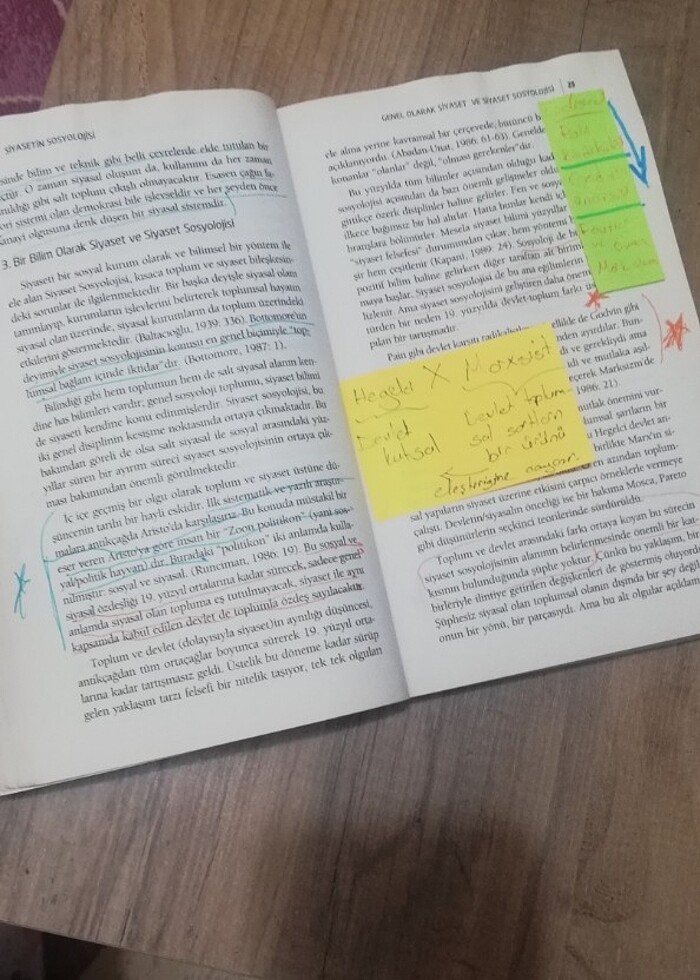 SİYASETİN SOSYOLOJİSİ
sinde bilim ve teknik gibi belli çevrelerde elde tutulan bir
O zaman siyasal oluşum da, kullanımı da her zaman
gibi salt toplum çıkışlı olmayacaktır. Esasen çağın fa-
sistemi olan demokrasi bile işlevseldir ve her şeyden önce
sanayi olgusuna denk düşen bir siyasal sistemdir.
3. Bir Bilim Olarak Siyaset ve Siyaset Sosyolojisi
Siyaseti bir sosyal kurum olarak ve bilimsel bir yöntem ile
ele alan Siyaset Sosyolojisi, kısaca toplum ve siyaset bileşkesin-
deki sorunlar ile ilgilenmektedir. Bir başka deyişle siyasal olanı
tanımlayıp, kurumların işlevlerini belirterek toplumsal hayatın
siyasal olan üzerinde, siyasal kurumların da toplum üzerindeki
etkilerini göstermektedir. (Baltacıoğlu, 1939: 336). Bottomore'un
deyimiyle siyaset sosyolojisinin konusu en genel biçimiyle "top-
lumsal bağlam içinde iktidar"dır. (Bottomore, 1987: 1).
Bilindiği gibi hem toplumun hem de salt siyasal alanın ken-
dine has bilimleri vardır; genel sosyoloji toplumu, siyaset bilimi
de siyaseti kendine konu edinmişlerdir. Siyaset sosyolojisi, bu
iki genel disiplinin kesişme noktasında ortaya çıkmaktadır. Bu
bakımdan göreli de olsa salt siyasal ile sosyal arasındaki yüz-
yıllar süren bir ayırım süreci siyaset sosyolojisinin ortaya çık-
ması bakımından önemli görülmektedir.
İç içe geçmiş bir olgu olarak toplum ve siyaset üstüne dü-
şüncenin tarihi bir hayli eskidir. İlk sistematik ve yazılı araştır-
malara antikçağda Aristo'da karşılaşırız. Bu konuda müstakil bir
eser veren Aristo'ya göre insan bir "Zoon politikon" (yani sos-
yal/politik hayvan) dır. Buradaki "politikon" iki anlamda kulla-
nılmıştır: sosyal ve siyasal. (Runciman, 1986: 19). Bu sosyal ve
siyasal özdeşliği 19. yüzyıl ortalarına kadar sürecek, sadece genel
anlamda siyasal olan topluma eş tutulmayacak, siyaset ile aynı
kapsamda kabul edilen devlet de toplumla özdeş sayılacaktır.
Toplum ve devlet (dolayısıyla siyaset)in aynılığı düşüncesi,
antikçağdan tüm ortaçağlar boyunca sürerek 19. yüzyıl orta-
larına kadar tartışmasız geldi. Üstelik bu döneme kadar sürüp
gelen yaklaşım tarzı felsefi bir nitelik taşıyor, tek tek olguları
GENEL OLARAK SİYASET VE SİYASET SOSYOLOJİSİ
ele alma yerine kavramsal bir çerçevede, bütüncü b
açıklanıyordu. (Abadan-Unat, 1986: 61-63). Genelde
konanlar "olanlar" değil, "olması gerekenler"dir.
Bu yüzyılda tüm bilimler açısından olduğu kad
sosyolojisi açısından da bazı önemli gelişmeler oldu
gittikçe özerk disiplinler haline gelirler. Fen ve sosya
ilkece bağımsız bir hal alırlar. Hatta bunlar kendi iç
branşlara bölünürler. Mesela siyaset bilimi yüzyıllar
"siyaset felsefesi" durumundan çıkar, hem yöntemi
şir hem çeşitlenir. (Kapani, 1989: 24). Sosyoloji de
pozitif bilim haline gelirken diğer taraftan alt birim
maya başlar. Siyaset sosyolojisi de bu ana eğilimlerin
izlenir. Ama siyaset sosyolojisini geliştiren daha önem
türden bir neden 19. yüzyılda devlet-toplum farkı üz
pılan bir tartışmadır.
ellikle de Godwin gibi
nden ayırdılar. Bun-
di ve gerekliydi ama
di ve mutlaka aşıl-
geçerek Marksizm'de
1986: 21).
Hegelci X Marxist
Devlet kutsal
Devlet toplum-
sal şartların
bir ürünü
mutlak önemini vur-
umsal şartların bir
u Hegelci devlet an-
birlikte Marx'ın si-
en azından toplum-
sal yapıların siyaset üzerine etkisini çarpıcı örneklerle vermeye
çalıştı. Devletin/siyasalın önceliği ise bir bakıma Mosca, Pareto
gibi düşünürlerin seçkinci teorilerinde sürdürüldü.
Toplum ve devlet arasındaki farkı ortaya koyan bu sürecin
siyaset sosyolojisinin alanının belirlenmesinde önemli bir kat-
kısının bulunduğunda şüphe yoktur. Çünkü bu yaklaşım, bir
birleriyle ilintiye getirilen değişkenleri de göstermiş oluyordu.
Şüphesiz siyasal olan toplumsal olanın dışında bir şey değil,
onun bir yönü, bir parçasıydı. Ama bu alt olgular açıkdan